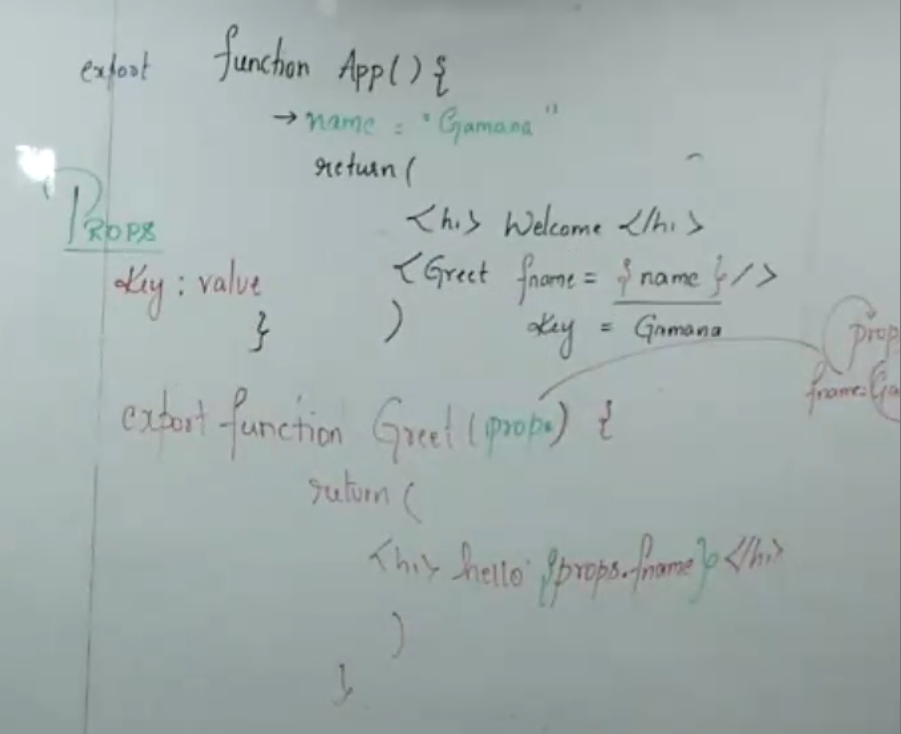 export function App() {
→ name = "Gamana"
return (
PROPS
<h1> Welcome </h1>
key : value
<Greet fname = { name } />
} )
key = Gamana
prop
fname: Ga
export function Greet (props) {
return (
<h1> hello {props.fname} </h1>
)
}